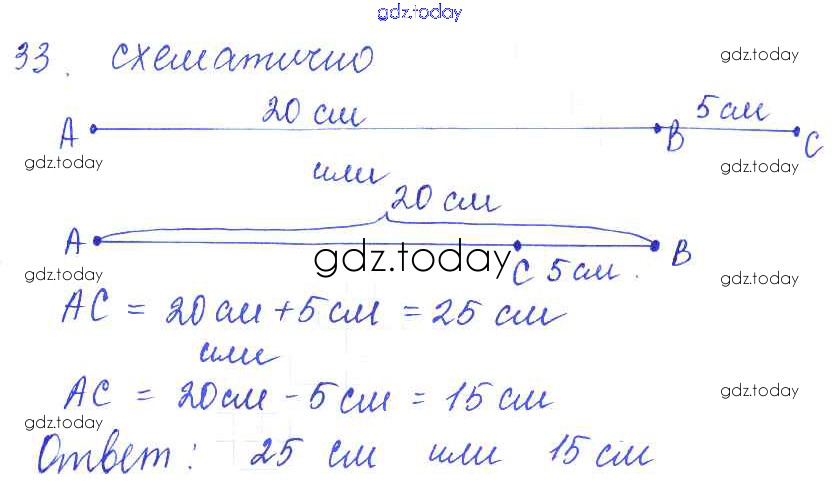 gdz.today
33. схематично
gdz.today
20 см 5 см
A B C
gdz.today gdz.today
или
20 см
A C 5 см. B
gdz.today
gdz.today gdz.today
AC = 20 см + 5 см = 25 см
или
AC = 20 см - 5 см = 15 см
gdz.today
gdz.today
Ответ: 25 см или 15 см